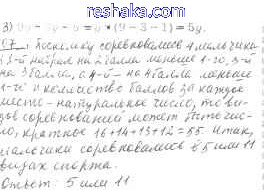 reshaka.com
3) 9y - 3y - y = y · (9 - 3 - 1) = 5y.
Поскольку соревновались 4 мальчика
и 3-й набрал на 2 балла меньше 1-го, 3-й
на 3 балла, а 4-й - на 4 балла меньше
1-го и количество баллов за каждое
место - натуральное число, то ви-
дов соревнований может быть чис-
ло, кратное 16+14+13+12=55. Итак,
мальчики соревновались в 5 или 11
видах спорта.
Ответ: 5 или 11